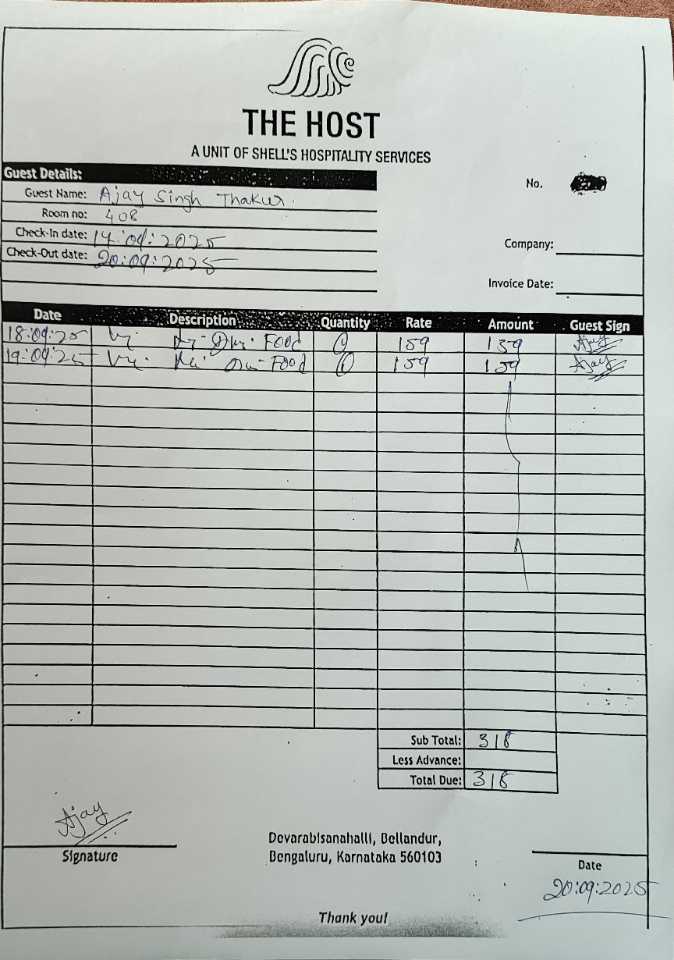 THE HOST
A UNIT OF SHELL'S HOSPITALITY SERVICES
Guest Details:
Guest Name: Ajay Singh Thakur
No.
Room no: 408
Check-In date: 14:09:2025
Company:
Check-Out date: 20:09:2025
Invoice Date:
Date Description Quantity Rate Amount Guest Sign
18:09:25 Food 1 159 159 Ajay
19:09:25 Food 1 159 159 Ajay
Sub Total: 318
Less Advance:
Total Due: 318
Ajay
Signature
Devarabisanahalli, Bellandur,
Bengaluru, Karnataka 560103
Date
20:09:2025
Thank you!